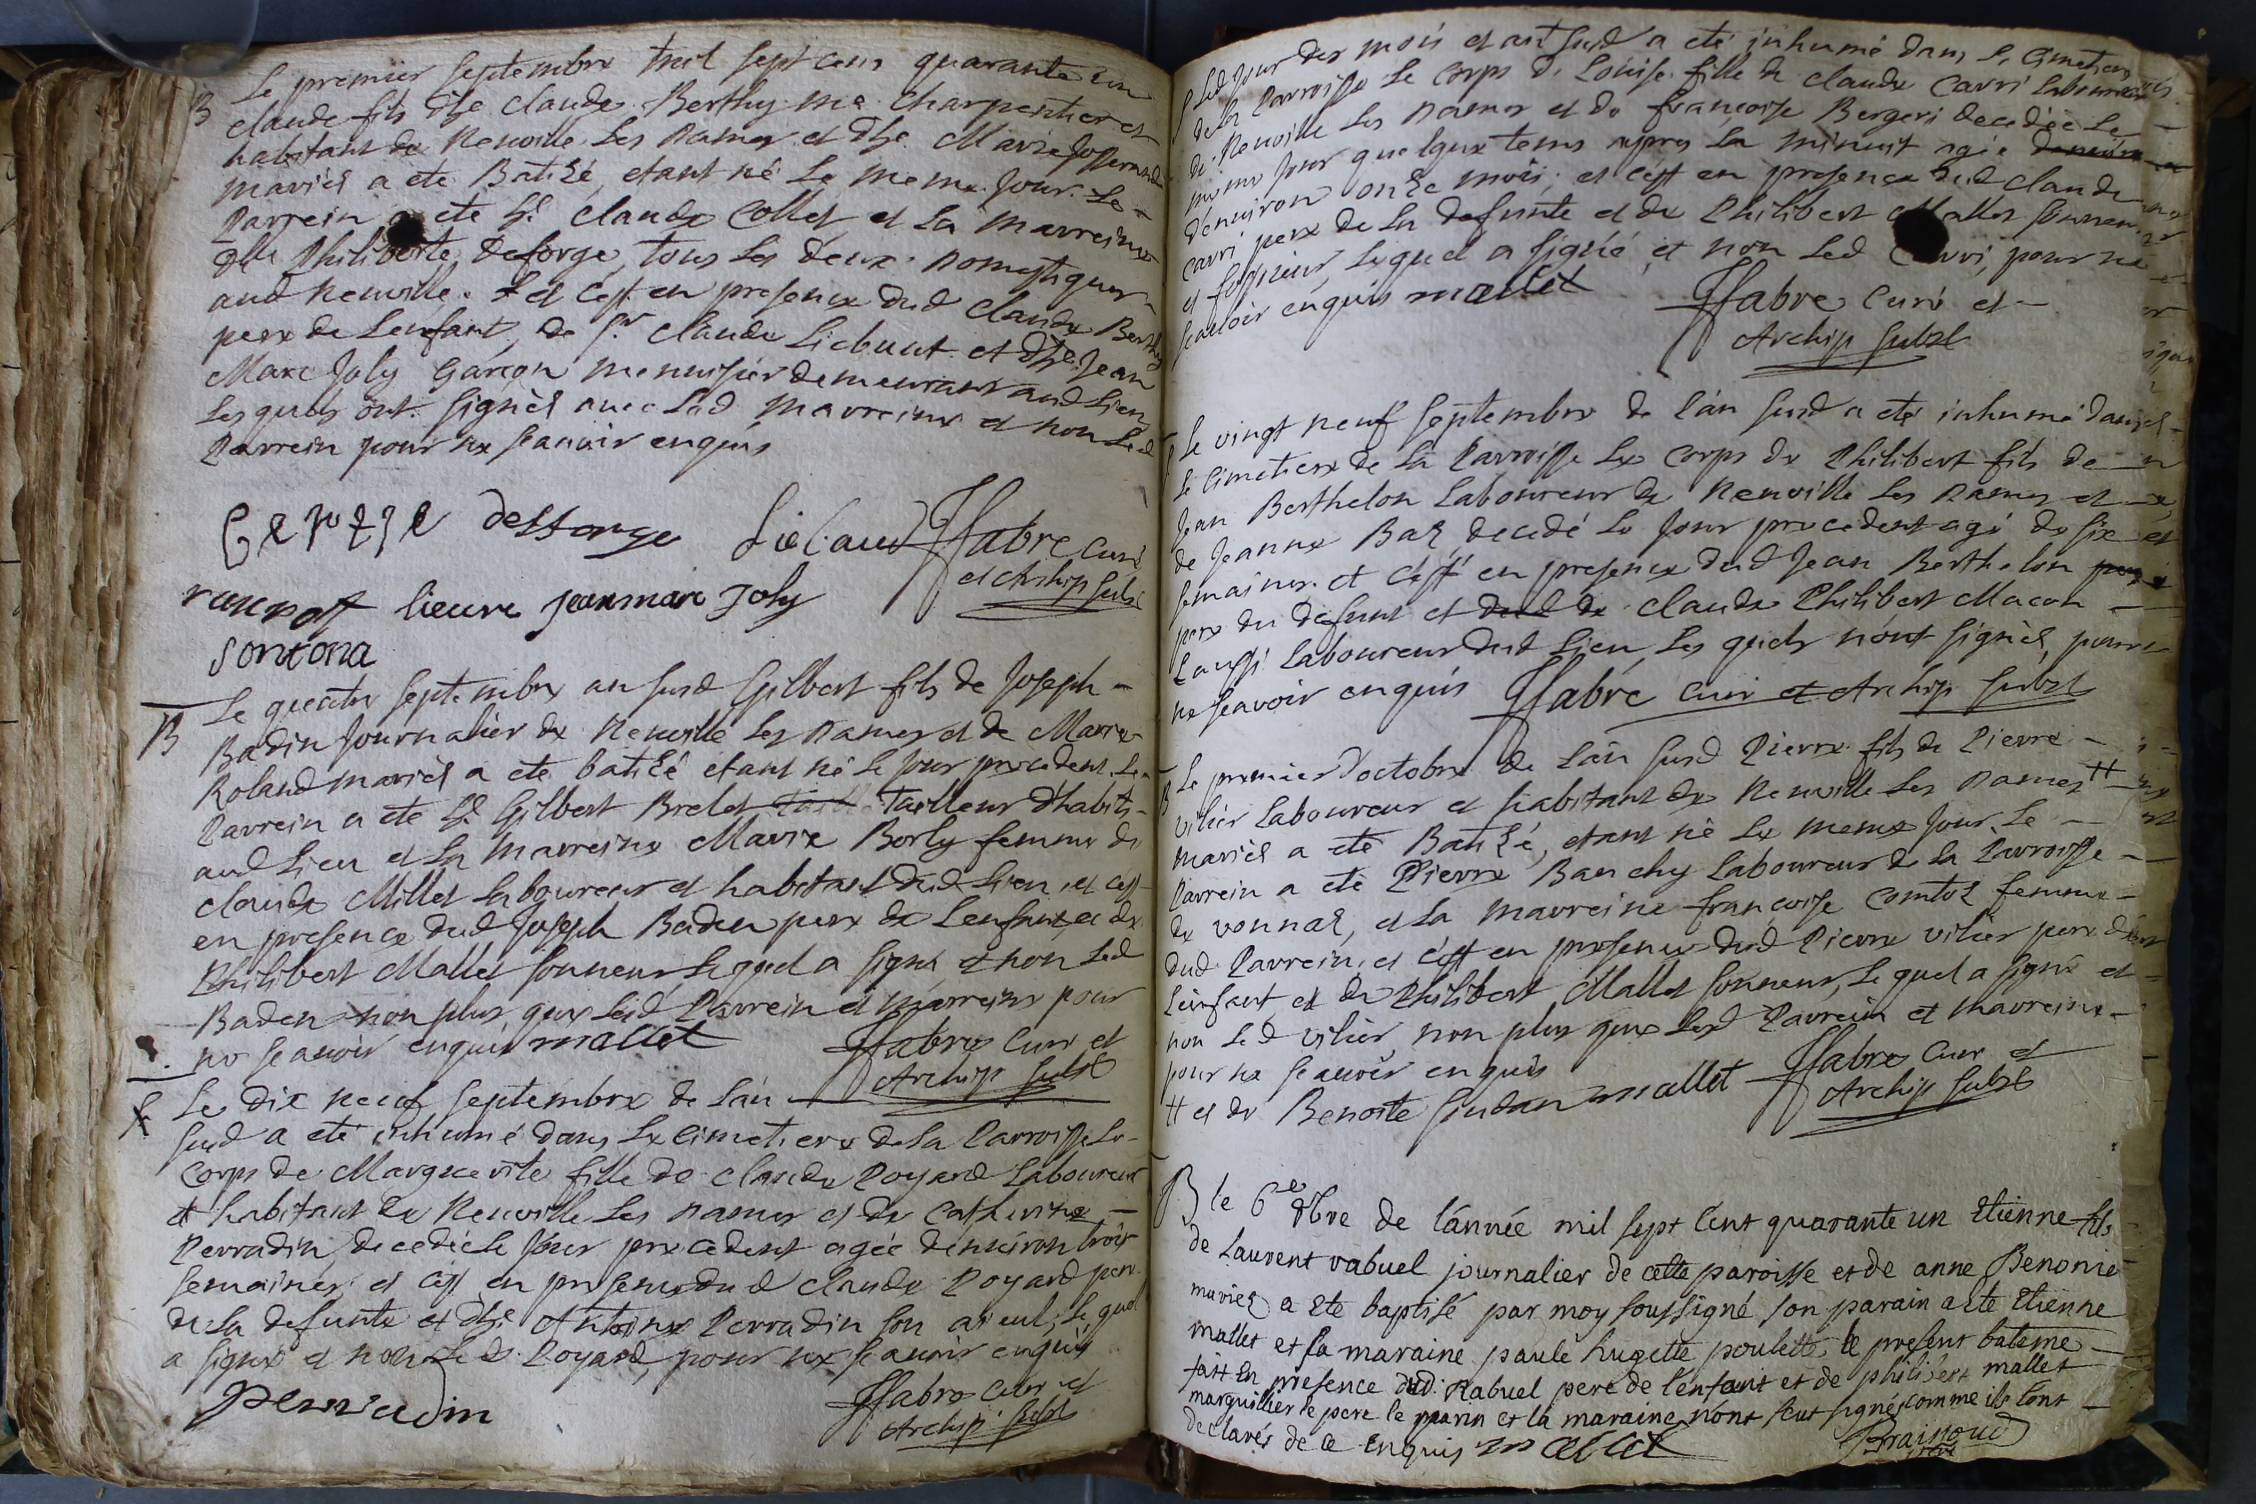 B
Le premier septembre mil sept cens quarante un
claude fils d'he claude Berthy me charpentier et
habitant de Neuville Les Dames et d'he Marie Josserand
mariés a ete Batizé, etant né Le meme Jour. Le
Parrein a ete Sr. Claude Collet et La marreine
dlle Philiberte Deforge, tous Les deux Domestiques
aud Neuville. et c'est en presence dud Claude Berthy
pere de Lenfant, de Sr Claude Liebaut et d'he Jean
Marc Joly Garçon menuisier demeurant aud Lieu
Lesquels ont signés avec Lad marreine et non Led
Parrein pour ne scavoir enquis
desforge Liebaud JFabre curé
et Archip subst
lieure jean marc Joly
B
Le quatre septembre an susd Gilbert fils de Joseph
Badin Journalier de Neuville Les Dames et de Marie
Roland mariés a ete batizé etant né le Jour precedent. Le
Parrein a ete Sr. Gilbert Brelet Tailleur d'habits
aud Lieu et La marreine Marie Borly femme de
claude Millet Laboureur et habitant dud Lieu, et c'est
en presence dud Joseph Baden pere de Lenfant, et de
Philibert Mallet sonneur, Lequel a signé, et non Led
Baden non plus que Led Parrein et marreine pour
ne scavoir enquis mallet JFabre Curé et
Archip subst
S
Le dix neuf septembre de L'an
susd a eté inhumé dans Le cimetiere de la Parroisse Le
corps de Marguerite fille de claude Poyard Laboureur
et habitant de Neuville Les Dames et de Catherine
Perradin, decedée le Jour precedent agée d'environ trois
semaines, et c'est en presence dud claude Poyard pere
de La defunte et d'he Antoine Perradin son aieul, Lequel
a signé et non Led. Poyard, pour ne scavoir enquis
perradin JFabre curé et
Archip subst
S
Led Jour des mois et an susd a eté inhumé dans Le Cimetiere
de La Parroisse Le Corps de Louise fille de claude Cavri Laboureur
de Neuville Les Dames et de francoise Bergeri decedée Le
meme Jour quelque tems apres La minuit agée
d'environ onze mois, et c'est en presence dud claude
Cavri pere de La defunte et de Philibert Mallet sonneur
et fossieur, Lequel a signé, et non Led Cavri, pour ne
scavoir enquis mallet JFabre Curé et
Archip subst
S
Le vingt neuf septembre de L'an susd a eté inhumé dans
Le Cimetiere de La Parroisse Le corps de Philibert fils de
Jean Berthelon Laboureur de Neuville Les Dames et
de Jeanne Baz, decedé Le Jour precedent agé de six
semaines. et c'est en presence dud Jean Berthelon
pere du defunt et de claude Philibert Macon
aussi Laboureur dud Lieu, Lesquels n'ont signés, pour
ne scavoir enquis JFabre curé et Archip subst
B
Le premier d'octobre de L'an susd Pierre fils de Pierre
vilier Laboureur et habitant de Neuville Les Dames ++
mariés a eté Batizé, etant né Le meme Jour. Le
Parrein a eté Pierre Banchy Laboureur de La Parroisse
de vonnaz, et La marreine francoise comtoz femme
dud Parrein, et c'est en presence dud Pierre vilier pere de
Lenfant, et de Philibert Mallet sonneur, Lequel a signé et
non Led vilier non plus que Lesd Parrein et marreine
pour ne scavoir enquis
++ et de Benoite mallet JFabre Curé et
Archip subst
B
le 6e 8bre de l'année mil sept cent quarante un Etienne fils
de Laurent rabuel journalier de cette paroisse et de anne Benonie
mariez a ete baptisé par moy soussigné son parain a ete Etienne
mallet et sa maraine paule hugette poulette le present bateme
fait En presence dud. Rabuel pere de l'enfant et de philibert mallet
marguillier le pere le parin et la maraine n'ont sceut signés comme ils l'ont
declarés de ce enquis mallet